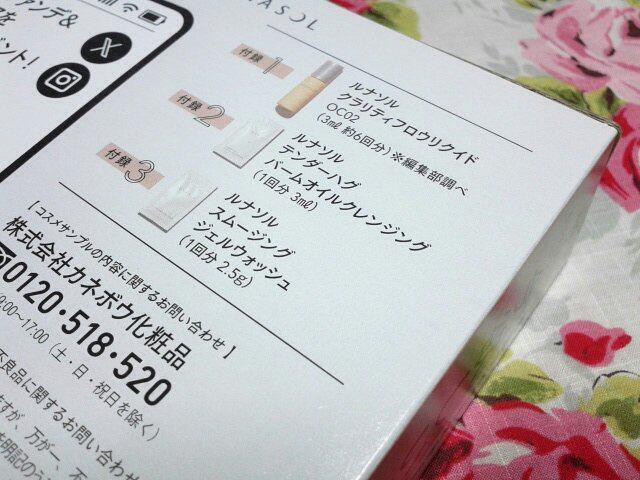 アンデ&
を
ント!
ASOL
付録1
ルナソル
クラリティフロウリクイド
OC02
(3mℓ 約6回分)※編集部調べ
付録2
ルナソル
テンダーハグ
バームオイルクレンジング
(1回分 3mℓ)
付録3
ルナソル
スムージング
ジェルウォッシュ
(1回分 2.5g)
【コスメサンプルの内容に関するお問い合わせ】
株式会社カネボウ化粧品
0120・518・520
9:00~17:00(土・日・祝日を除く)
不良品に関するお問い合わせ
ますが、万が一、不
明記のう